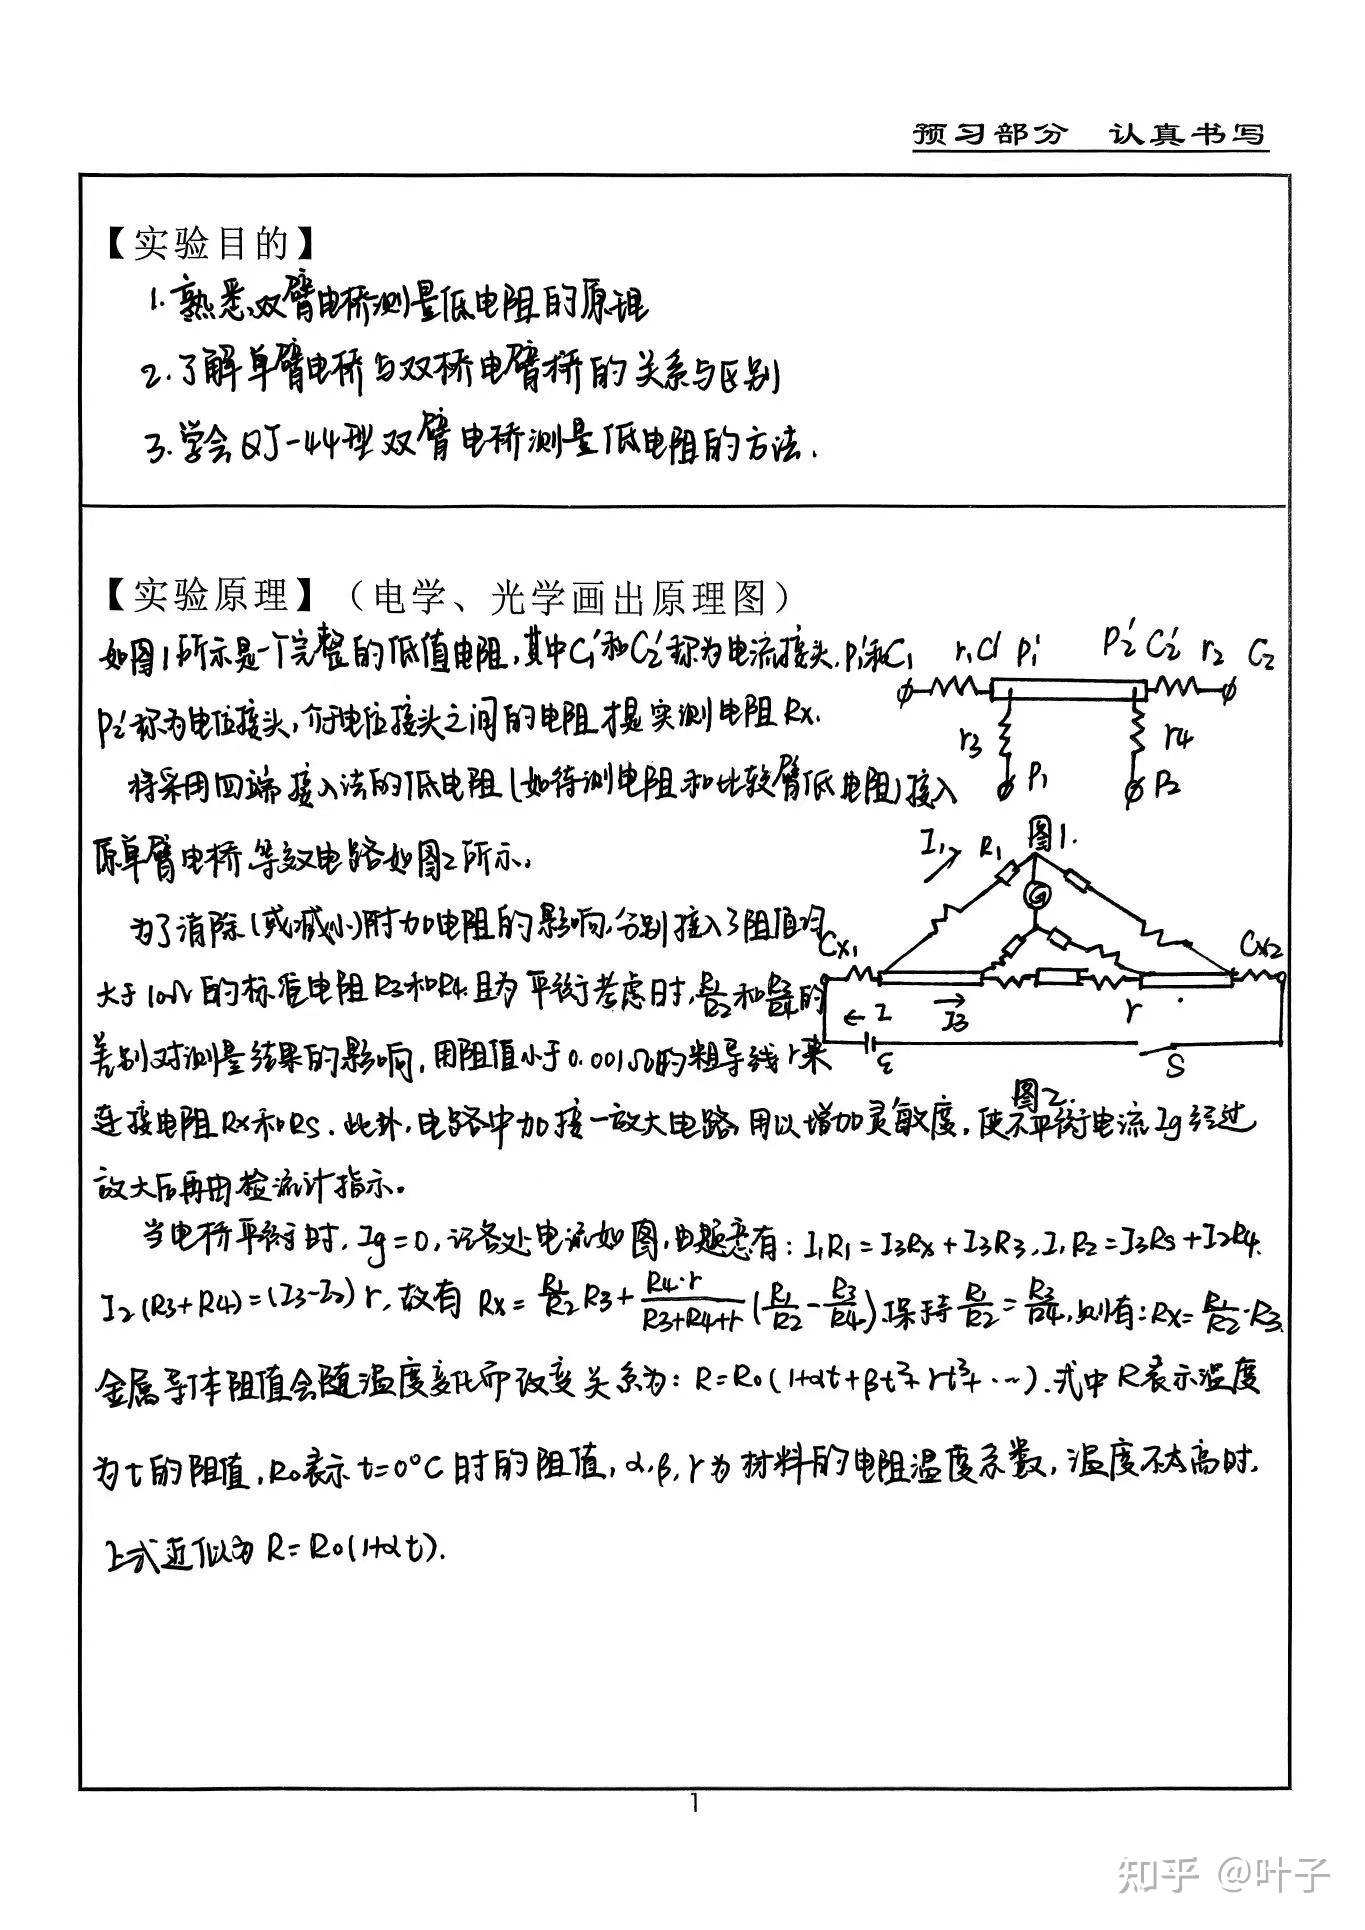 预习部分 认真书写
【实验目的】
1.熟悉双臂电桥测量低电阻的原理
2.了解单臂电桥与双桥电臂桥的关系与区别
3.学会QJ-44型双臂电桥测量低电阻的方法.
【实验原理】(电学、光学画出原理图)
如图1所示是一个完整的低值电阻,其中C1'和C2'称为电流接头,P1'和
P2'称为电位接头,介于电位接头之间的电阻才是实测电阻Rx.
将采用四端接入法的低电阻(如待测电阻和比较臂低电阻)接入
原单臂电桥,等效电路如图2所示。
C1 r1 C1' P1' P2' C2' r2 C2
r3 r4
P1 P2
图1.
I1 R1
G
Cx1 Cx2
I I3 r
ε S
图2.
为了消除(或减小)附加电阻的影响,分别接入了阻值均
大于10Ω的标准电阻R3和R4.且为平衡考虑时,R1/R2和R3/R4的
差别对测量结果的影响,用阻值小于0.001Ω的粗导线r来
连接电阻Rx和Rs.此外,电路中加接一放大电路,用以增加灵敏度,使不平衡电流Ig经过
放大后再由检流计指示。
当电桥平衡时,Ig=0,记各处电流如图,由题意有:I1R1=I3Rx+I3R3,I1R2=I3Rs+I2R4.
I2(R3+R4)=(I3-I2)r,故有Rx=R1/R2 R3+R4·r/(R3+R4+r)(R1/R2-R3/R4).保持R1/R2=R3/R4,则有:Rx=R1/R2·R3.
金属导体阻值会随温度变化而改变关系为:R=R0(1+αt+βt²+rt³+···).式中R表示温度
为t的阻值,R0表示t=0°C时的阻值,α,β,r为材料的电阻温度系数,温度不太高时.
上式近似为R=R0(1+αt).
1
知乎 @叶子